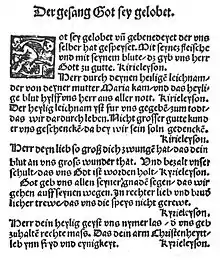 Der gesang Got sey gelobet.
Got sey gelobet vñ gebenedeyet der vns
selber hat gespeyset. Mit seynes fleische
vnd mit seynem blute, dz gyb vns herr
Got zu gutte. Kirieleyson.
Herr durch deynen heilige leichnam,
der von deyner mutter Maria kam, vnd das heyli-
ge blut hylff vns herr aus aller nott. Kirieleyson.
Der heylig leichnam yst fur vns gegebē zum todt
das wir dardurch leben. Nicht grosser gutte kund
er vns geschenckē da bey wir sein soln gedenckē.
Kirieleyson.
Herr deyn lieb so groß dich zwungē hat, das dein
blut an vns groß wunder that. Vnd bezalt vnser
schult, das vns Got ist worden holt. Kyrieleyson.
Got geb vns allen seyner gnad segen, das wir
gehen auff seynen wegen. Jn rechter lieb vnd brud
licher trewe, das vns die speys nicht gerewt.
Kyrieleyson.
Herr dein heylig geyst vns nymer las, d vns geb
zu haltē rechte mass. Das dein arm Christenheyt
leb ynn fryd vnd eynigkeyt. Kyrieleyson.